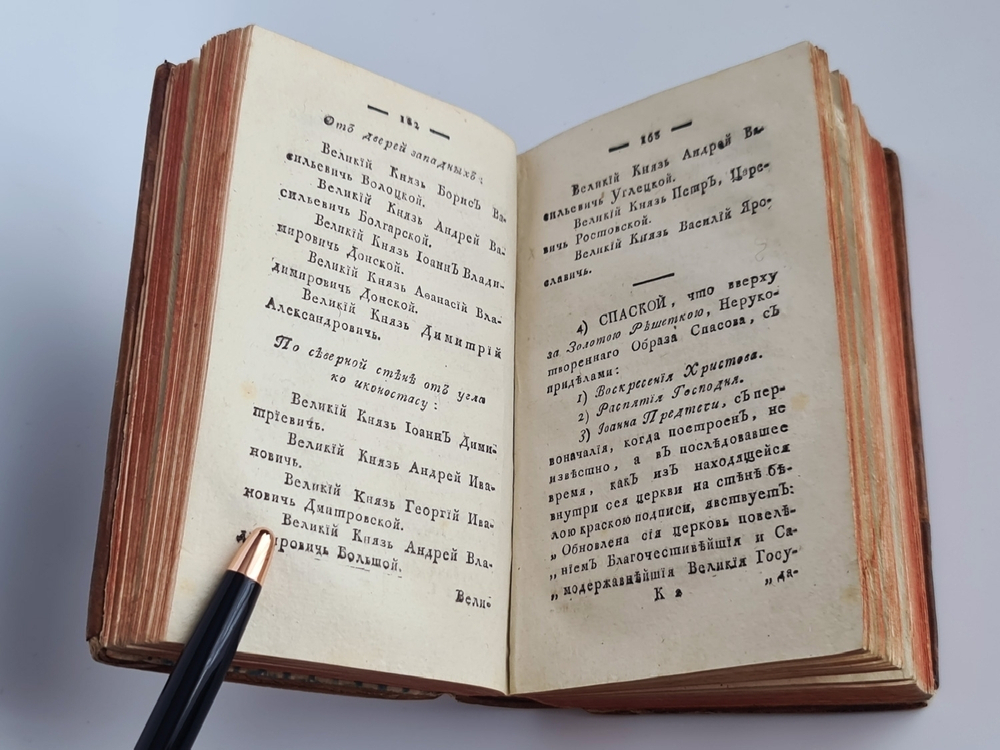 — 182 —
Отъ дверей западныхъ:
Великій Князь Борисъ Ва-
сильевичь Волоцкой.
Великій Князь Андрей Ва-
сильевичь Болгарской.
Великій Князь Іоаннъ Влади-
мировичь Донской.
Великій Князь Аѳанасій Вла-
димировичь Донской.
Великій Князь Димитрій
Александровичь.
По сѣверной стѣнѣ отъ угла
ко иконостасу:
Великій Князь Іоаннъ Дими-
тріевичь.
Великій Князь Андрей Ива-
новичь.
Великій Князь Георгій Ива-
новичь Дмитровской.
Великій Князь Андрей Вла-
ировичь Большой.
Вели-
— 183 —
Великій Князь Андрей Ва-
сильевичь Углецкой.
Великій Князь Петръ, Царе-
вичь Ростовской.
Великій Князь Василій Яро-
славичь.
4) СПАСКОЙ, что вверху
за Золотою Рѣшеткою, Неруко-
твореннаго Образа Спасова, съ
придѣлами:
1) Воскресенія Христова.
2) Распятія Господня.
3) Іоанна Предтечи, съ пер-
воначалія, когда построенъ, не
извѣстно, а въ послѣдовавшее
время, какъ изъ находящейся
внутри сея церкви на стѣнѣ бѣ-
лою краскою подписи, явствуетъ:
„Обновлена сія церковь повелѣ-
„ніемъ Благочестивѣйшія и Са-
„модержавнѣйшія Великія Госу-
К 2
„да-